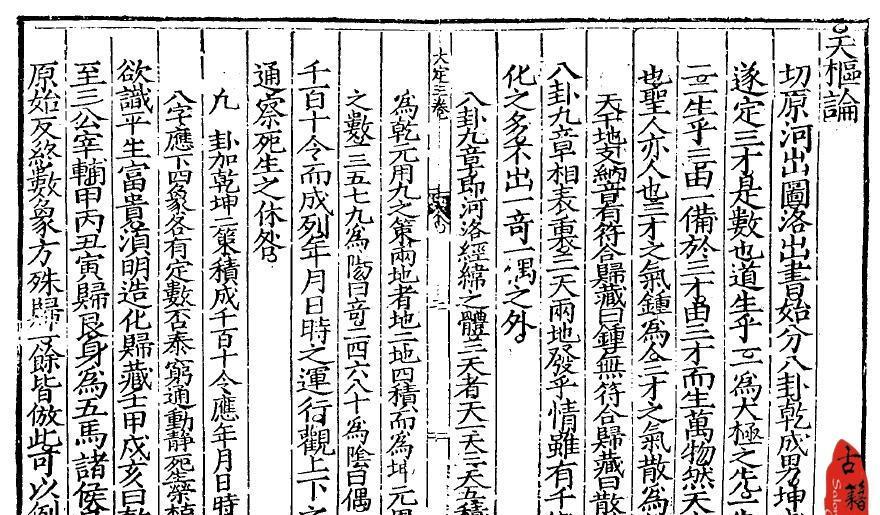 天樞論
切原河出圖洛出書始分八卦乾成男坤
遂定三才是數也道生乎一一為太極之先一
二二生乎三由一備於三才由三才而生萬物然天
也聖人亦人也三才之氣鍾為人三才之氣散為
天干地支納音有符合歸藏曰鍾無符合歸藏曰散
八卦九章相表裏三天兩地發乎情雖有千
化之多不出一奇一偶之外
八卦九章即河洛經緯之體三天者天一天三天五積
大定三卷
為乾元用九之策兩地者地二地四積而為坤元用
之數一三五七九為陽曰奇二四六八十為陰曰偶
千百十令而成列年月日時之運行觀上下之
通察死生之休咎
九卦加乾坤二策積成千百十令應年月日時
八字應下四象各有定數否泰窮通動靜死生榮
欲識平生富貴須明造化歸藏壬甲戌亥曰乾
至三公宰輔甲丙丑寅歸艮身為五馬諸侯
原始反終數象方殊歸一餘皆倣此可以例
古籍